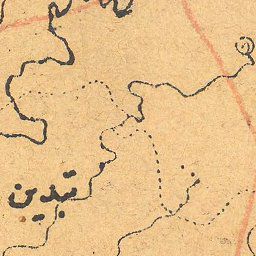 تبدين